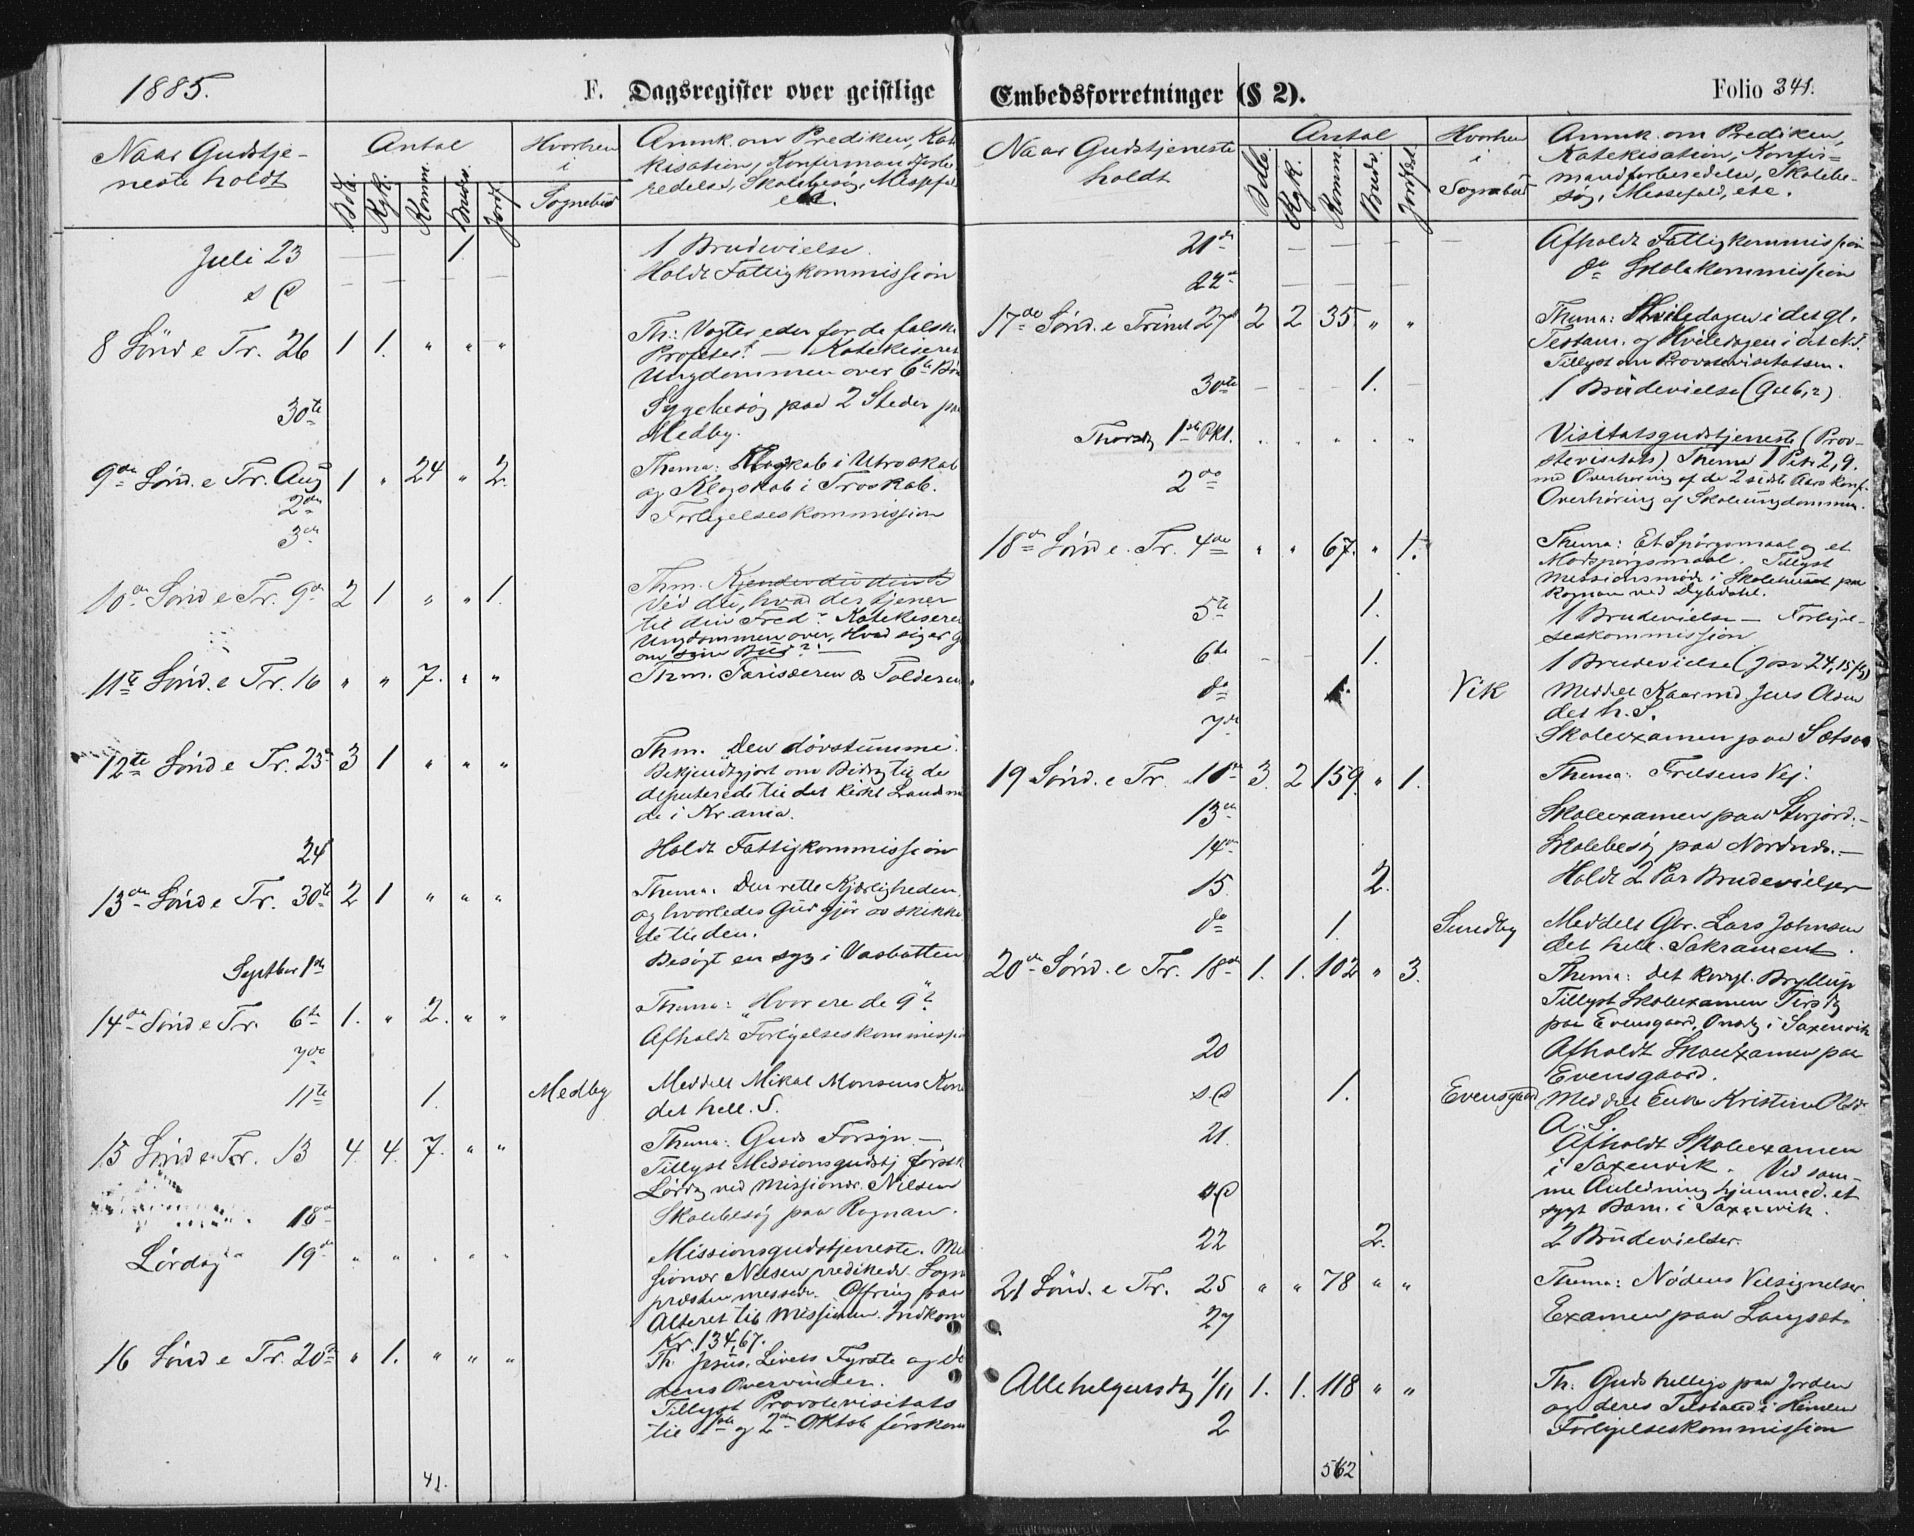 1885.
F. Dagsregister over geistlige
Naar Gudstje-
neste holdt
Antal
Døb.
Kgk.
Komm.
Brudv.
Jordf.
Hvorhen
i
Sognebud
Anmk. om Prediken, Kate
kisation, Konfirmandforbe
redelse, Skolebesøg, Messefal
etc.
Juli 23 — — 1. 1 Brudevielse.
s. D. — — Holdt Fattigkommission
8 Sønd e Tr. 26 1 1. " " " Th: Vogter eder for de falske
Profeter! — Katekiseret
Ungdommen over 6te Bøn
30te Sygebesøg paa 2 Steder paa
Medby.
9de Sønd. e Tr. Aug 1 " 24 " 2. Thema: Klogskab i Utroskab
2den og Klogskab i Troskab.
3die Forligelseskommission
10de Sønd e Tr. 9de 2 1 " " 1. Thm. Kjender du din tid
Ved du, hvad der tjener
til din Fred? Katekiseret
Ungdommen over, Hvad siger G
om sine Bud? —
11te Sønd. e Tr. 16 " " 7. " " Thm. Farisæeren & Tolderen
12te Sønd e Tr. 23de 3 1 " " " Thm. Den døvstumme.
Bekjendtgjort om Bidrag til de
deputerede til det kirkl Landsmø
de i Kr.ania.
24 Holdt Fattigkommission
13de Sønd e Tr. 30te 2 1 " " " Thema. Den rette Kjærligheden
og hvorledes Gud gjør os skikke
de til den.
Septbr 1ste Besøgt en syg i Vasbotten
14de Sønd e Tr. 6te 1. " 2. " " Thema: "Hvor ere de 9"?
7de Afholdt Forligelseskommission
11te 1. Medby Meddelt Mikal Monsens Kone
det hell. S.
15 Sønd e Tr. 13 4. 4. 7. " " Thema: Guds Forsyn. —
Tillyst Missionsgudstj førstk
Lørdag ved Missionær Nilsen
18de Skolebesøg paa Rognan.
Lørdag 19de " " " " " Missionsgudstjeneste. Mis
sionær Nilsen predikede. Sogne
præsten messede. Ofring paa
Alteret til Missionen. Indkom
Kr. 134,67.
16 Sønd e Tr. 20de " 1. " " " Th. Jesus, Livets Fyrste og Dø
dens Overvinder.
Tillyst Provstevisitats
til 1ste og 2den Oktob førstkom
41.
Embedsforretninger (§ 2).
Folio 341.
Naar Gudstjeneste
holdt
Antal
Døbt.
Kgk.
Komm.
Brudv.
Jordfst.
Hvorhen
i
Sognebud
Anmk. om Prediken,
Katekisation, Konfir-
mandforberedelse, Skolebe-
søg, Messefald, etc.
21de — — — — — — Afholdt Fattigkommission
22de do Skolekommission
17de Sønd. e Trinit 27de 2 2 35. " " Thema: Hviledagen i det gl.
Testam. og Hviledagen i det N.T.
Tillyst om Provstevisitatsen.
30te — — — 1. — 1 Brudevielse (Gal 6,2)
Thorsdag 1ste Okt. " " " " " Visitatsgudstjeneste (Prov-
stevisitats) Thema 1 Pet. 2,9.
2den med Overhøring af de 2 sidste Aars konf.
Overhøring af Skoleungdommen.
18de Sønd e. Tr. 4de " " 67. " 1. Thema: Et Spørgsmaal og et
Modspørgsmaal. Tillyst
Missionsmøde i Skolehuset paa
Rognan ved Dybdahl.
5te 1. 1 Brudevielse — Forligel-
seskommission
6te — — 1. 1 Brudevielse (Josv 24,15 flg)
do 1. Vik Meddelt Kaarmd. Jens Aden
det h. S.
7de Skoleexamen paa Sætsaa
19 Sønd. e Tr. 11te 3. 2 159. " 1. Thema: Frelsens Vej.
13de Skoleexamen paa Storjord. —
14de Skolebesøg paa Nordnæs. —
15. 2. Holdt 2 Par Brudevielser
do 1. Sundby Meddelt Gbr. Lars Johnsen
det hell. Sakrament.
20de Sønd. e Tr. 18de 1. 1. 102 " 3. Thema: Det kongl. Bryllup
Tillyst Skoleexamen Tirsdag
paa Evensgaard, Onsdag i Saxenvik
20 Afholdt Skoleexamen paa
Evensgaard.
s. D 1. Evensgaard Meddelt Enke Kristine Olsd.
A. S.
21. Afholdt Skoleexamen
i Saxenvik. Ved sam-
s. D me Anledning hjemmed. et
sygt Barn i Saxenvik.
22 2. 2 Brudevielser.
21 Sønd. e Tr. 25 " " 78 " " Thema: Nødens Velsignelser.
27 Examen paa Langset.
Allehelgensdag 1/11 1. 1. 118 " " Th. Guds hellige paa Jorden
og deres Tilstand i Himlen
2 Forligelseskommission
562